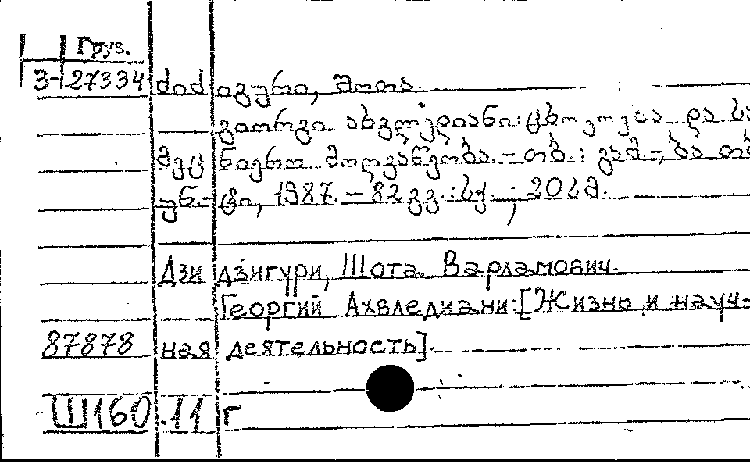 Груз.
3-27334 ძიძიგური, შოთა.
გიორგი ახვლედიანი: ცხოვრება და სა
მეცნიერო მოღვაწეობა. - თბ.: გამ-ბა თბ
უნ-ტი, 1987. - 82 გვ.: სქ. ; 20 სმ.
Дзидзигури, Шота Варламович.
Георгий Ахвледиани: [Жизнь и науч-
87878 ная деятельность].
Ш160.11 г